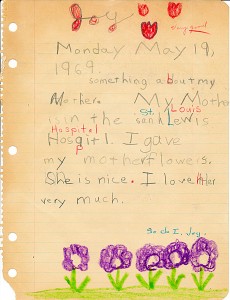 Joy
very good
Monday May 19,
1969.
something about my
Mother. My Mother
St. Louis
is in the sank Lewis
Hospital
Hospitl. I gave
my mother flowers.
She is nice. I love Her
very much.
So do I, Joy.